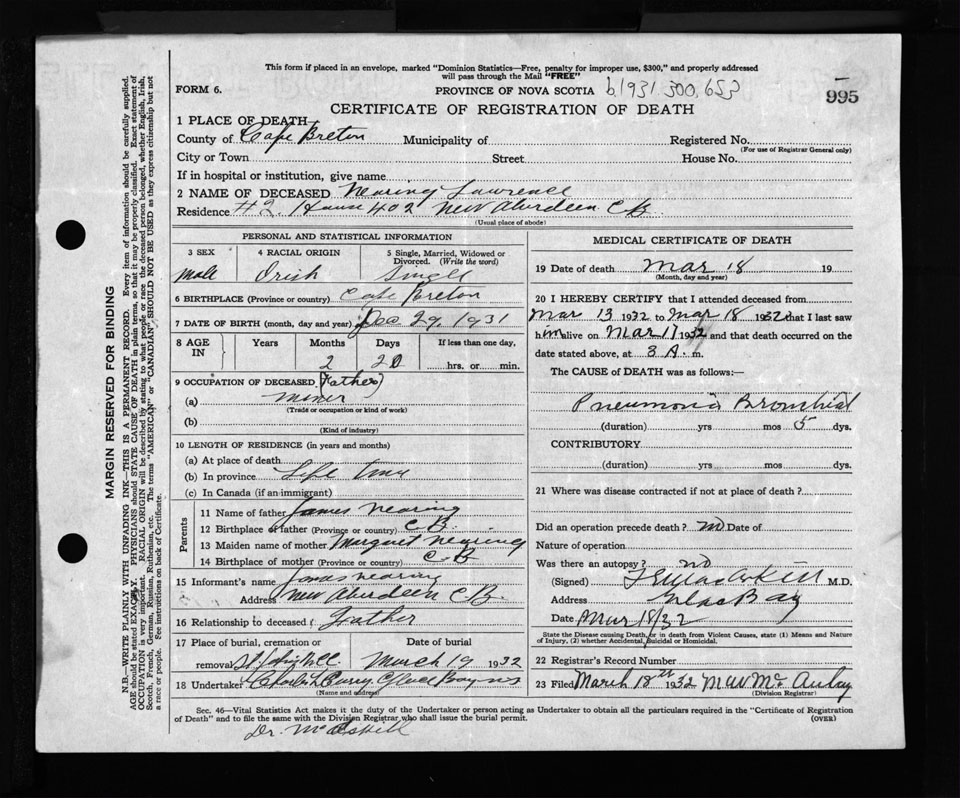 This form if placed in an envelope, marked "Dominion Statistics—Free, penalty for improper use, $300," and properly addressed
will pass through the Mail "FREE"
FORM 6.
PROVINCE OF NOVA SCOTIA b1931.500.653
995
CERTIFICATE OF REGISTRATION OF DEATH
1 PLACE OF DEATH
County of Cape Breton Municipality of Registered No.
(For use of Registrar General only)
City or Town Street House No.
If in hospital or institution, give name
2 NAME OF DECEASED Nearing Lawrence
Residence #2 House 402 New Aberdeen C.B.
(Usual place of abode)
PERSONAL AND STATISTICAL INFORMATION
3 SEX 4 RACIAL ORIGIN 5 Single, Married, Widowed or
Divorced. (Write the word)
male Irish Single
6 BIRTHPLACE (Province or country) Cape Breton
7 DATE OF BIRTH (month, day and year) Dec 29, 1931
8 AGE IN Years Months Days If less than one day,
2 20 hrs. or min.
9 OCCUPATION OF DECEASED (Father)
(a) miner
(Trade or occupation or kind of work)
(b)
(Kind of industry)
10 LENGTH OF RESIDENCE (in years and months)
(a) At place of death
(b) In province Life time
(c) In Canada (if an immigrant)
Parents
11 Name of father James Nearing
12 Birthplace of father (Province or country) C B.
13 Maiden name of mother Margaret Nearing
14 Birthplace of mother (Province or country) C. B
15 Informant's name James Nearing
Address New Aberdeen C.B.
16 Relationship to deceased Father
17 Place of burial, cremation or Date of burial
removal March 19 1932
18 Undertaker Charles L Curry Glace Bay NS
(Name and address)
MEDICAL CERTIFICATE OF DEATH
19 Date of death Mar 18 19
(Month, day and year)
20 I HEREBY CERTIFY that I attended deceased from
Mar 13 1932 to Mar 18 1932 that I last saw
him alive on Mar 17 1932 and that death occurred on the
date stated above, at 3 A. m.
The CAUSE of DEATH was as follows:
Pneumonia Bronchial
(duration) yrs mos 5 dys.
CONTRIBUTORY
(duration) yrs mos dys.
21 Where was disease contracted if not at place of death?
Did an operation precede death? no Date of
Nature of operation
Was there an autopsy? no
(Signed) M.D.
Address Glace Bay
Date Mar 18/32
State the Disease causing Death, or in death from Violent Causes, state (1) Means and Nature
of Injury, (2) whether Accidental, Suicidal or Homicidal.
22 Registrar's Record Number
23 Filed March 18th 1932
(Division Registrar)
Sec. 46—Vital Statistics Act makes it the duty of the Undertaker or person acting as Undertaker to obtain all the particulars required in the "Certificate of Registration
of Death" and to file the same with the Division Registrar who shall issue the burial permit. (OVER)
Dr. McAskill
MARGIN RESERVED FOR BINDING
N.B.—WRITE PLAINLY WITH UNFADING INK—THIS IS A PERMANENT RECORD. Every item of information should be carefully supplied.
AGE should be stated EXACTLY. PHYSICIANS should STATE CAUSE OF DEATH in plain terms, so that it may be properly classified. Exact statement of
OCCUPATION is very important. RACIAL ORIGIN will be described by stating to what people or race the deceased person belonged, whether English, Irish,
Scotch, French, German, Russian, Ruthenian, etc. The terms "AMERICAN" or "CANADIAN" SHOULD NOT BE USED as they express citizenship but not
a race or people. See instructions on back of Certificate.